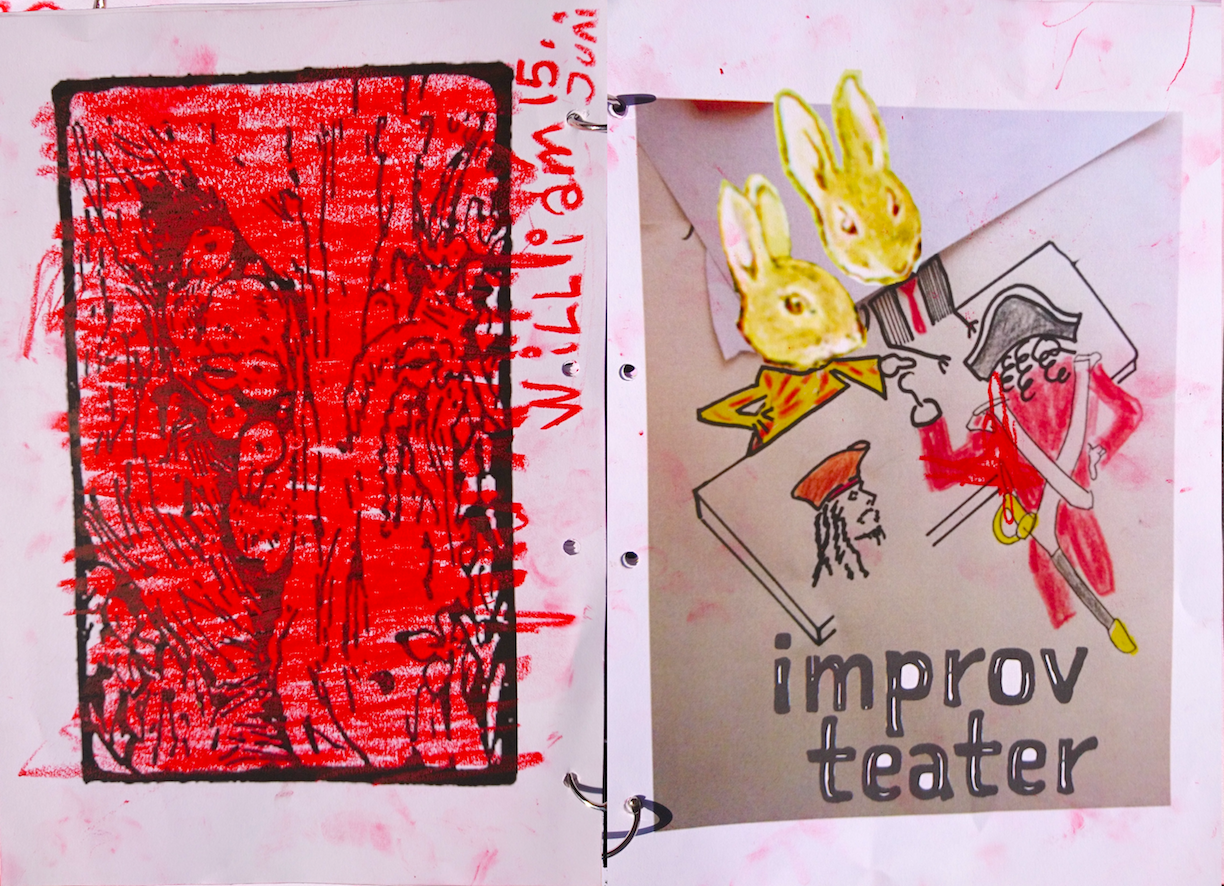 WiLLiam 15.
Juni
improv
teater